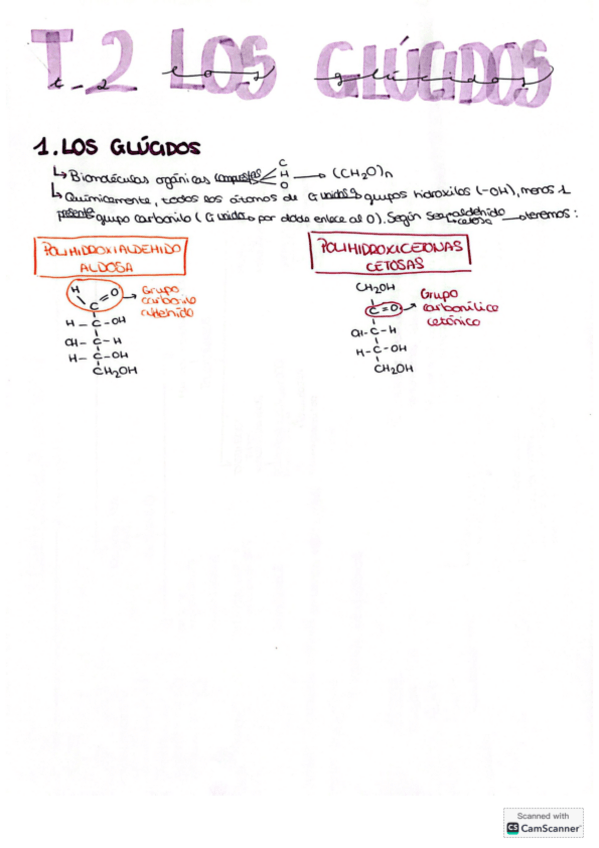 T.2 LOS GLÚCIDOS
t-2 los glúcidos
1. LOS GLÚCIDOS
C
↳ Biomoléculas orgánicas compuestas H → (CH2O)n
O
↳ Químicamente, todos los átomos de C unidos grupos hidroxilos (-OH), menos 1
presente grupo carbonilo (C unido por doble enlace al O). Según sea aldehído cetosa tenemos:
POLIHIDROXIALDEHIDO
ALDOSA
H C=O
Grupo
carbonilo
aldehído
H-C-OH
OH-C-H
H-C-OH
CH2OH
POLIHIDROXICETONAS
CETOSAS
CH2OH
C=O
Grupo
carbonílico
cetónico
OH-C-H
H-C-OH
CH2OH
Scanned with
CS CamScanner